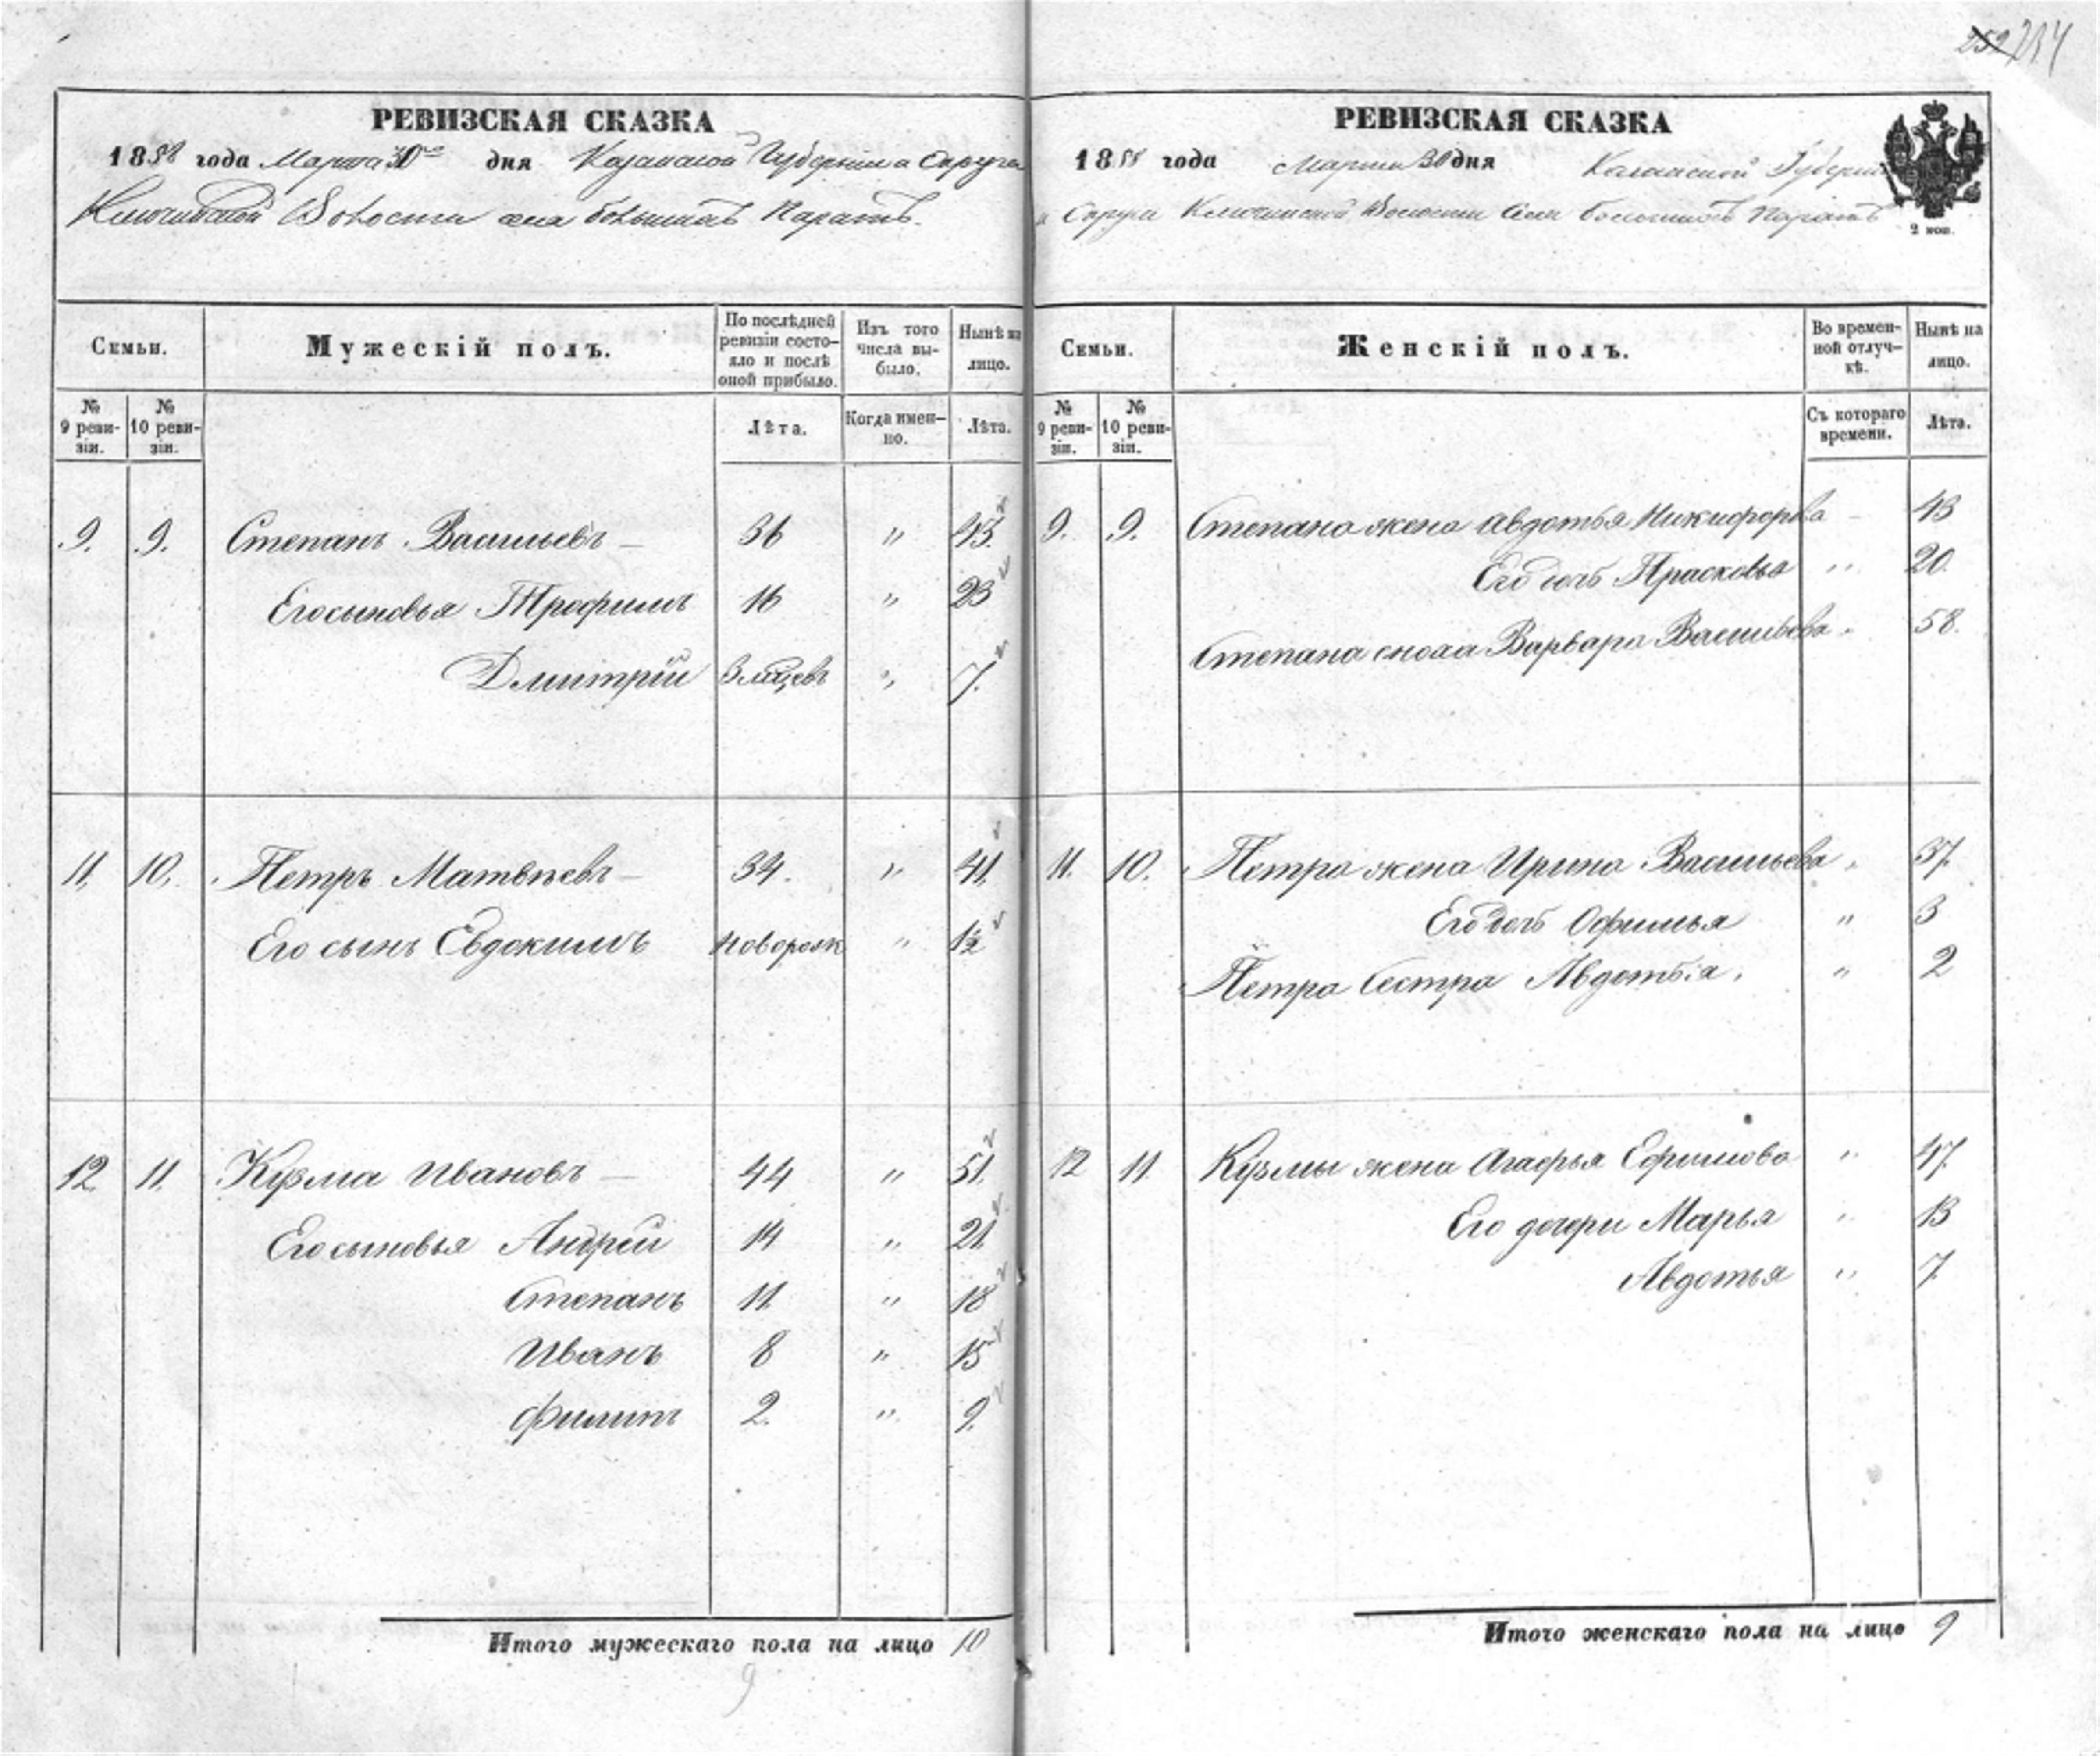 252 234
РЕВИЗСКАЯ СКАЗКА
1858 года Марта 30го дня Казанской Губернии и Округа
Ключинской Волости села большихъ Паратъ.
Семьи.
Мужескій полъ.
По послѣдней ревизіи состояло и послѣ оной прибыло.
Изъ того числа выбыло.
Нынѣ на лицо.
№ 9 ревизіи.
№ 10 ревизіи.
Лѣта.
Когда именно.
Лѣта.
9. 9. Степанъ Васильевъ — 36 " 43.
Его сыновья Трофимъ 16 " 23
Дмитрій 3 мѣцевъ " 7.
11. 10. Петръ Матвѣевъ — 34. " 41.
Его сынъ Евдокимъ новорож " 1½
12 11. Кузма Ивановъ — 44 " 51.
Его сыновья Андрей 14 " 21.
Степанъ 11 " 18
Иванъ 8 " 15
Филипъ 2. " 9.
Итого мужескаго пола на лицо 10
9
РЕВИЗСКАЯ СКАЗКА
1858 года Марта 30 дня Казанской Губерніи
и Округи Ключинской Волости Села Большихъ Паратъ
2 коп.
Семьи.
Женскій полъ.
Во временной отлучкѣ.
Нынѣ на лицо.
№ 9 ревизіи.
№ 10 ревизіи.
Съ котораго времени.
Лѣта.
9. 9. Степана жена Авдотья Никифорва 43
Его дочь Прасковья " 20.
Степана сноха Варвара Васильева " 58.
11. 10. Петра жена Ирина Васильева " 37.
Его дочь Офимья " 3
Петра Сестра Авдотья. " 2
12 11. Кузмы жена Агафья Ефимова " 47.
Его дочери Марья " 13
Авдотья " 7.
Итого женскаго пола на лицо 9